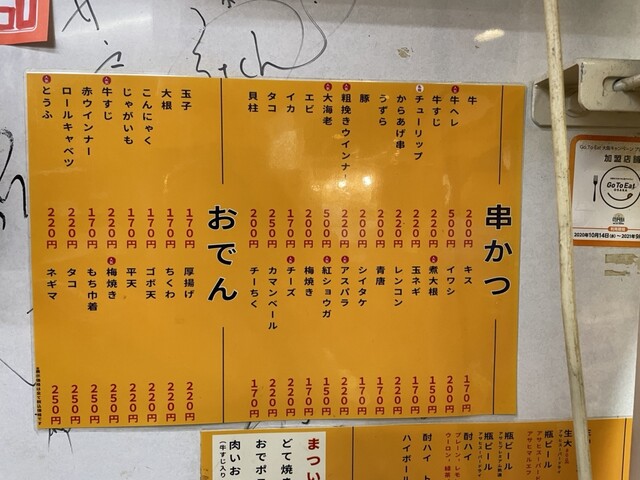 串かつ
牛 200円
牛ヘレ 500円
牛すじ 220円
チューリップ 220円
からあげ串 220円
うずら 200円
豚 200円
粗挽きウインナー 220円
大海老 500円
エビ 200円
イカ 170円
タコ 250円
貝柱 200円
キス 170円
イワシ 200円
煮大根 150円
玉ネギ 170円
レンコン 220円
青唐 170円
シイタケ 170円
アスパラ 220円
紅ショウガ 150円
梅焼き 170円
チーズ 220円
カマンベール 220円
チーちく 170円
おでん
玉子 170円
大根 170円
こんにゃく 170円
じゃがいも 170円
牛すじ 220円
赤ウインナー 170円
ロールキャベツ 220円
とうふ 220円
厚揚げ 220円
ちくわ 220円
ゴボ天 220円
平天 220円
梅焼き 250円
もち巾着 250円
タコ 250円
ネギマ 250円
加盟店舗
Go To Eat
2020年10月14日
生大
瓶ビール
アサヒスーパード
アサヒマルエフ
瓶ビール
瓶ビール
酎ハイ
プレーン、レモ
ウーロン、緑茶
酎ハイ
ハイボール
まつい
どて焼き
おでポテ
肉いお
(牛すじ入り